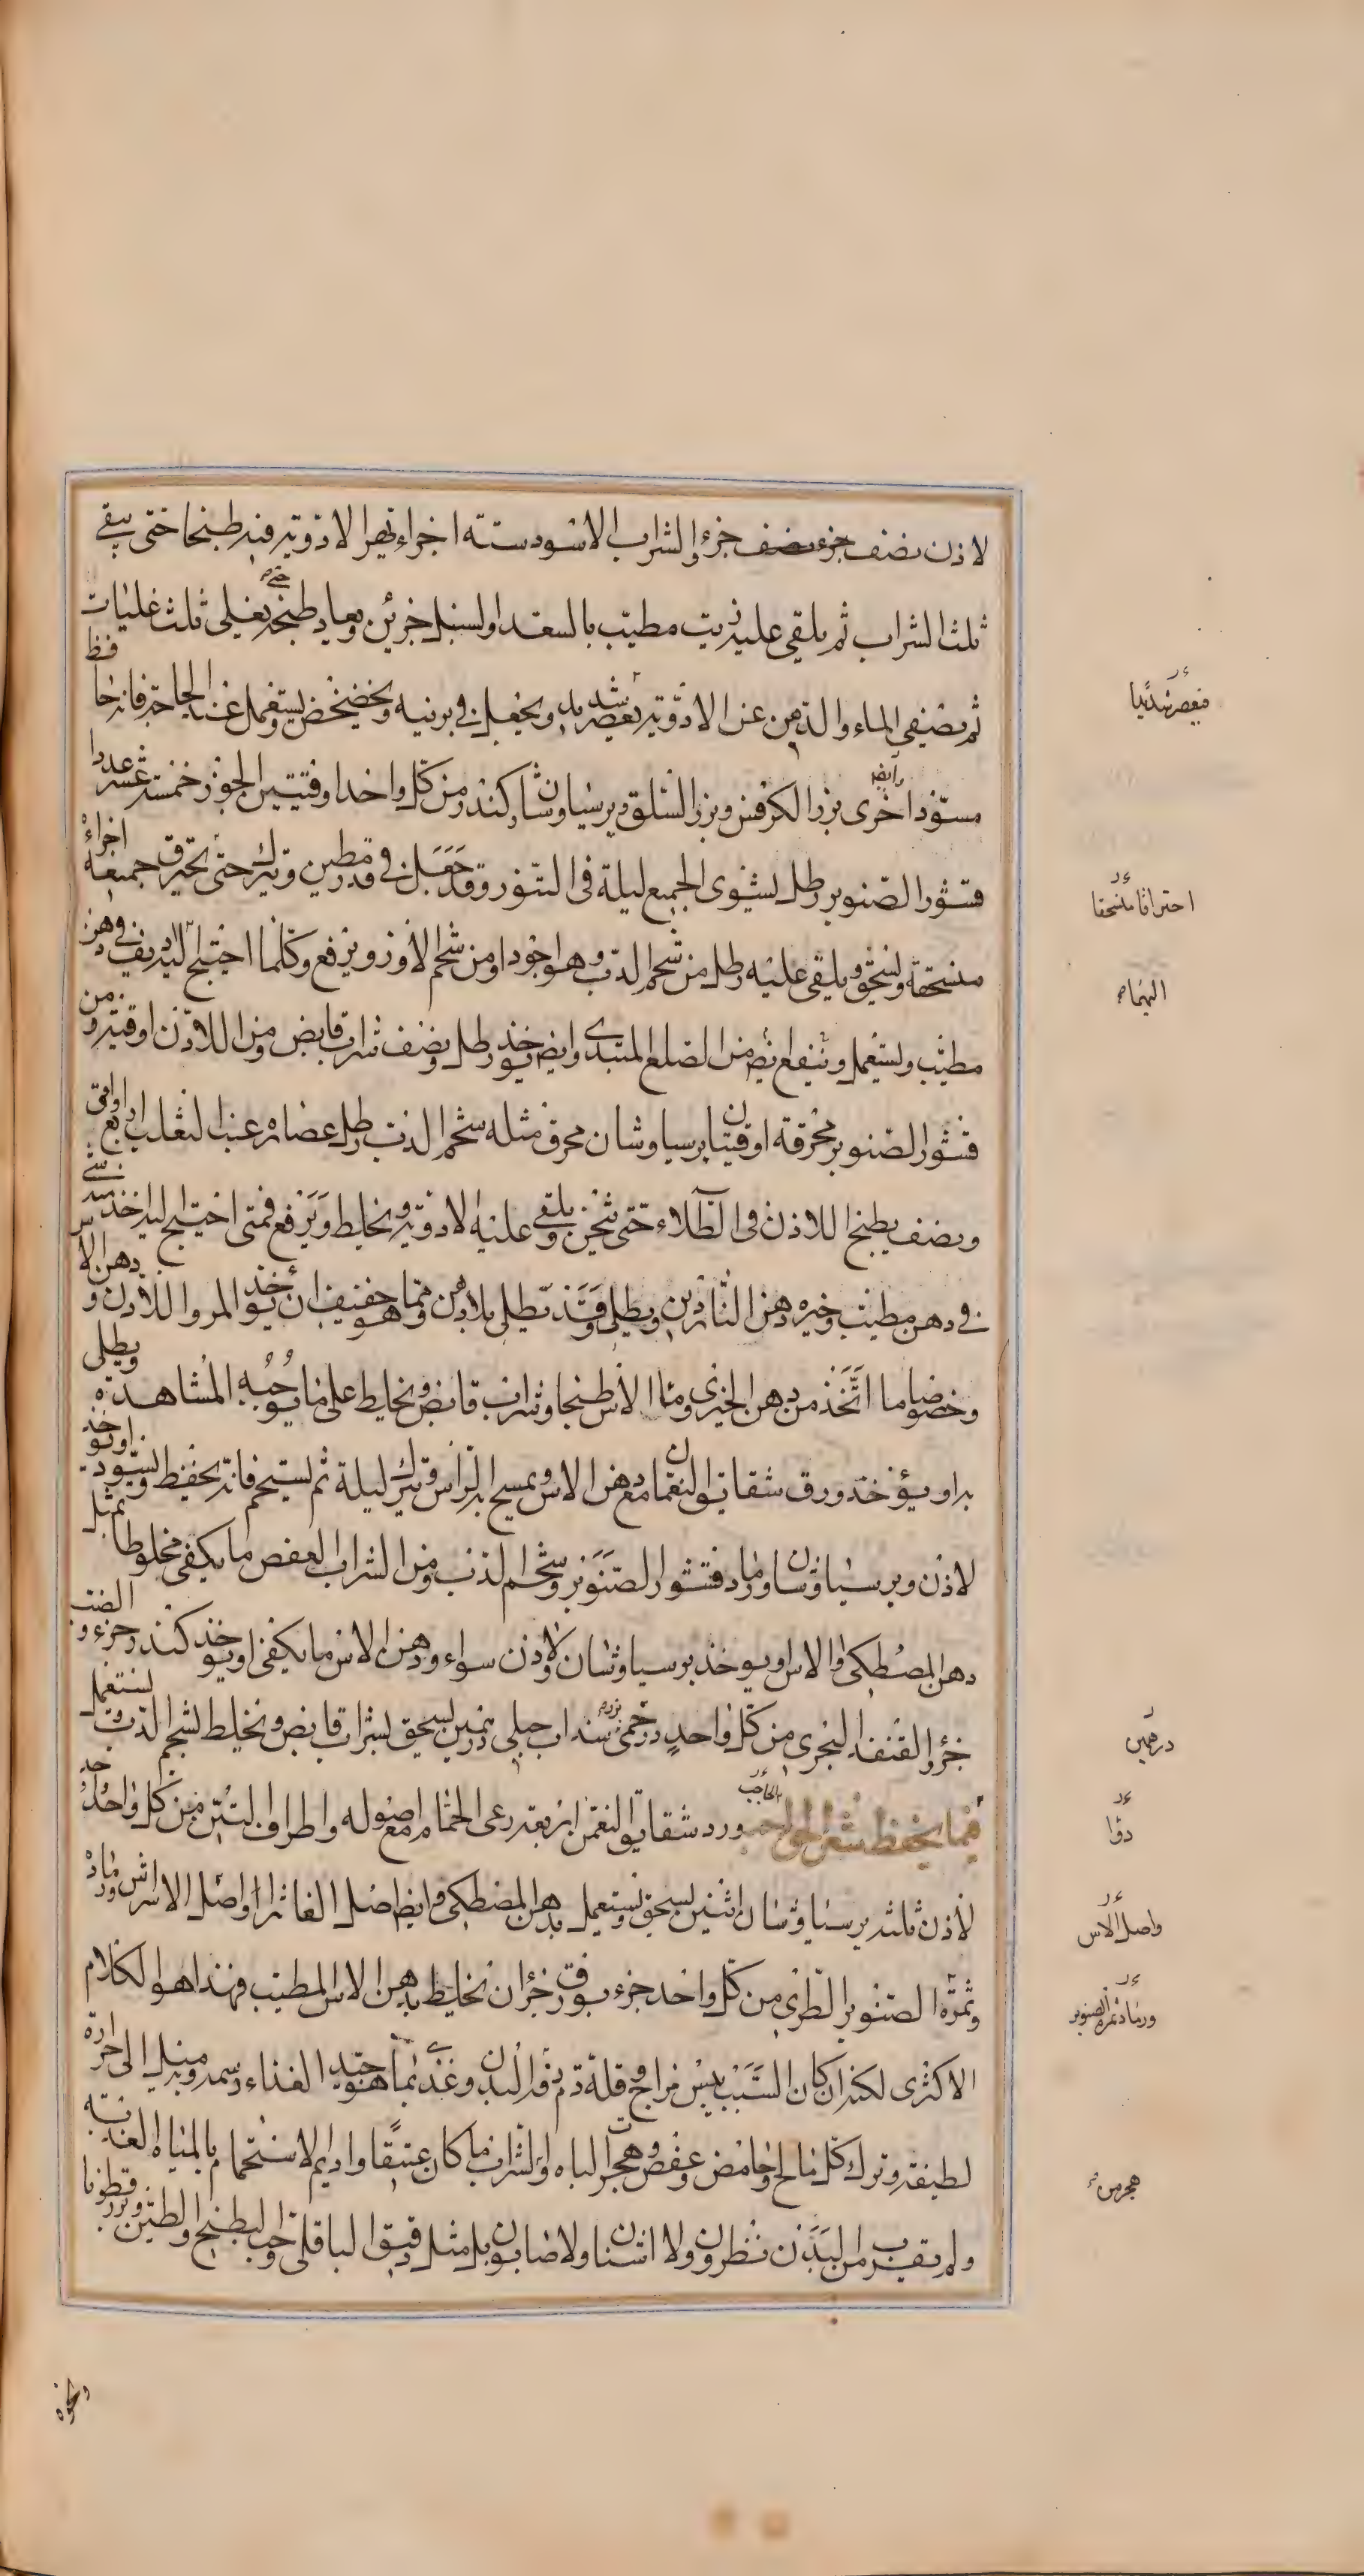 لاذن نصف جزء نصف جزء والشراب الاسود ستة اجزاء تهرا الادوية فيه طبخا حتى يبقى
ثلث الشراب ثم يلقى عليه زيت مطيب بالسعد او لسنبل جزئين ويعاد طبخه يغلى ثلث غليات
ثم يصفى الماء والدهن عن الادوية بعصر شديد ويجعل في برنية ويخضخض ويستعمل عند الحاجة فانه حافظ
مسود اخرى وايضا بزر الكرفس وبزر السلق وبرسياوشان وكندر من كل واحد اوقيتين الجوز خمسة عشر عددا
قشور الصنوبر رطل يشوى الجميع ليلة في التنور وقد جعل في قدر مطين ويترك حتى يحترق جميعه اجزاء
منسحقة ويسحق ويلقى عليه رطل من شحم الدب وهو اجود او من شحم الاوز ويرفع وكلما احتيج اليه ديف في دهن
مطيب ويستعمل وينفع ايضا من الصلع المبتدى وايضا يوخذ رطل ونصف شراب قابض ومن اللاذن اوقية ومن
قشور الصنوبر محرقة اوقيتان برسياوشان محرق مثله شحم الدب رطل عصاره عنب الثعلب اربع اواقى
ونصف يطبخ اللاذن في الطلاء حتى يثخن ويلقى عليه الادوية ويخلط ويرفع فمتى احتيج اليه اخذ منه شئ
في دهن مطيب وخيره دهن الناردين ويطلى وقد يطلى بلا دهن ومما هو خفيف ان يوخذ المر واللاذن ودهن الاس
وخصوصا ما اتخذ من دهن الخيرى وماء الاس طبخا وشراب قابض ويخلط على ما يوجبه المشاهدة ويطلى
به او يؤخذ ورق شقايق النعمان مع دهن الاس ويمسح به الراس ويترك ليلة ثم يستحم فانه يحفظ ويسود او يوخذ
لاذن وبرسياوشان ورماد قشور الصنوبر وشحم الدب ومن الشراب العفص ما يكفى مخلوطا بمثل
دهن المصطكى والاس او يوخذ برسياوشان ولاذن سواء ودهن الاس ما يكفى او يوخذ كندر جزء وخرء الضب
خرء القنفذ البحرى من كل واحد درخمى بزر سنداب جبلى درهمين يسحق بشراب قابض ويخلط بشحم الدب ويستعمل
فيما يحفظ شعر الحواجب ورد شقايق النعمن اربعه رعى الحمام مع اصوله واطراف التين من كل واحد
لاذن ثلثه برسياوشان اثنين يسحق ويستعمل بدهن المصطكى وايضا اصل الفاشرا واصل الاسراش ورماد
وثمرة الصنوبر الطرى من كل واحد جزء بورق جزءان يخلط بدهن الاس المطيب فهذا هو الكلام
الاكثرى لكنه ان كان السبب يبس مزاج وقلة دم وغذى بما هو جيد الغذاء دسمه وميله الى حرارة
لطيفة وترك كل مالح وحامض وعفص وهجر الباه والشراب ما كان عتيقا واديم الاستحمام بالمياه العذبه
ولم يقرب من البدن نطرون ولا اشنان ولا صابون بل مثل دقيق الباقلى وحب البطيخ والطين وبزر قطونا
فيعصر شديدا
احتراقا منسحقا
درهمين
واصل الاس
ورماد ثمرة الصنوبر